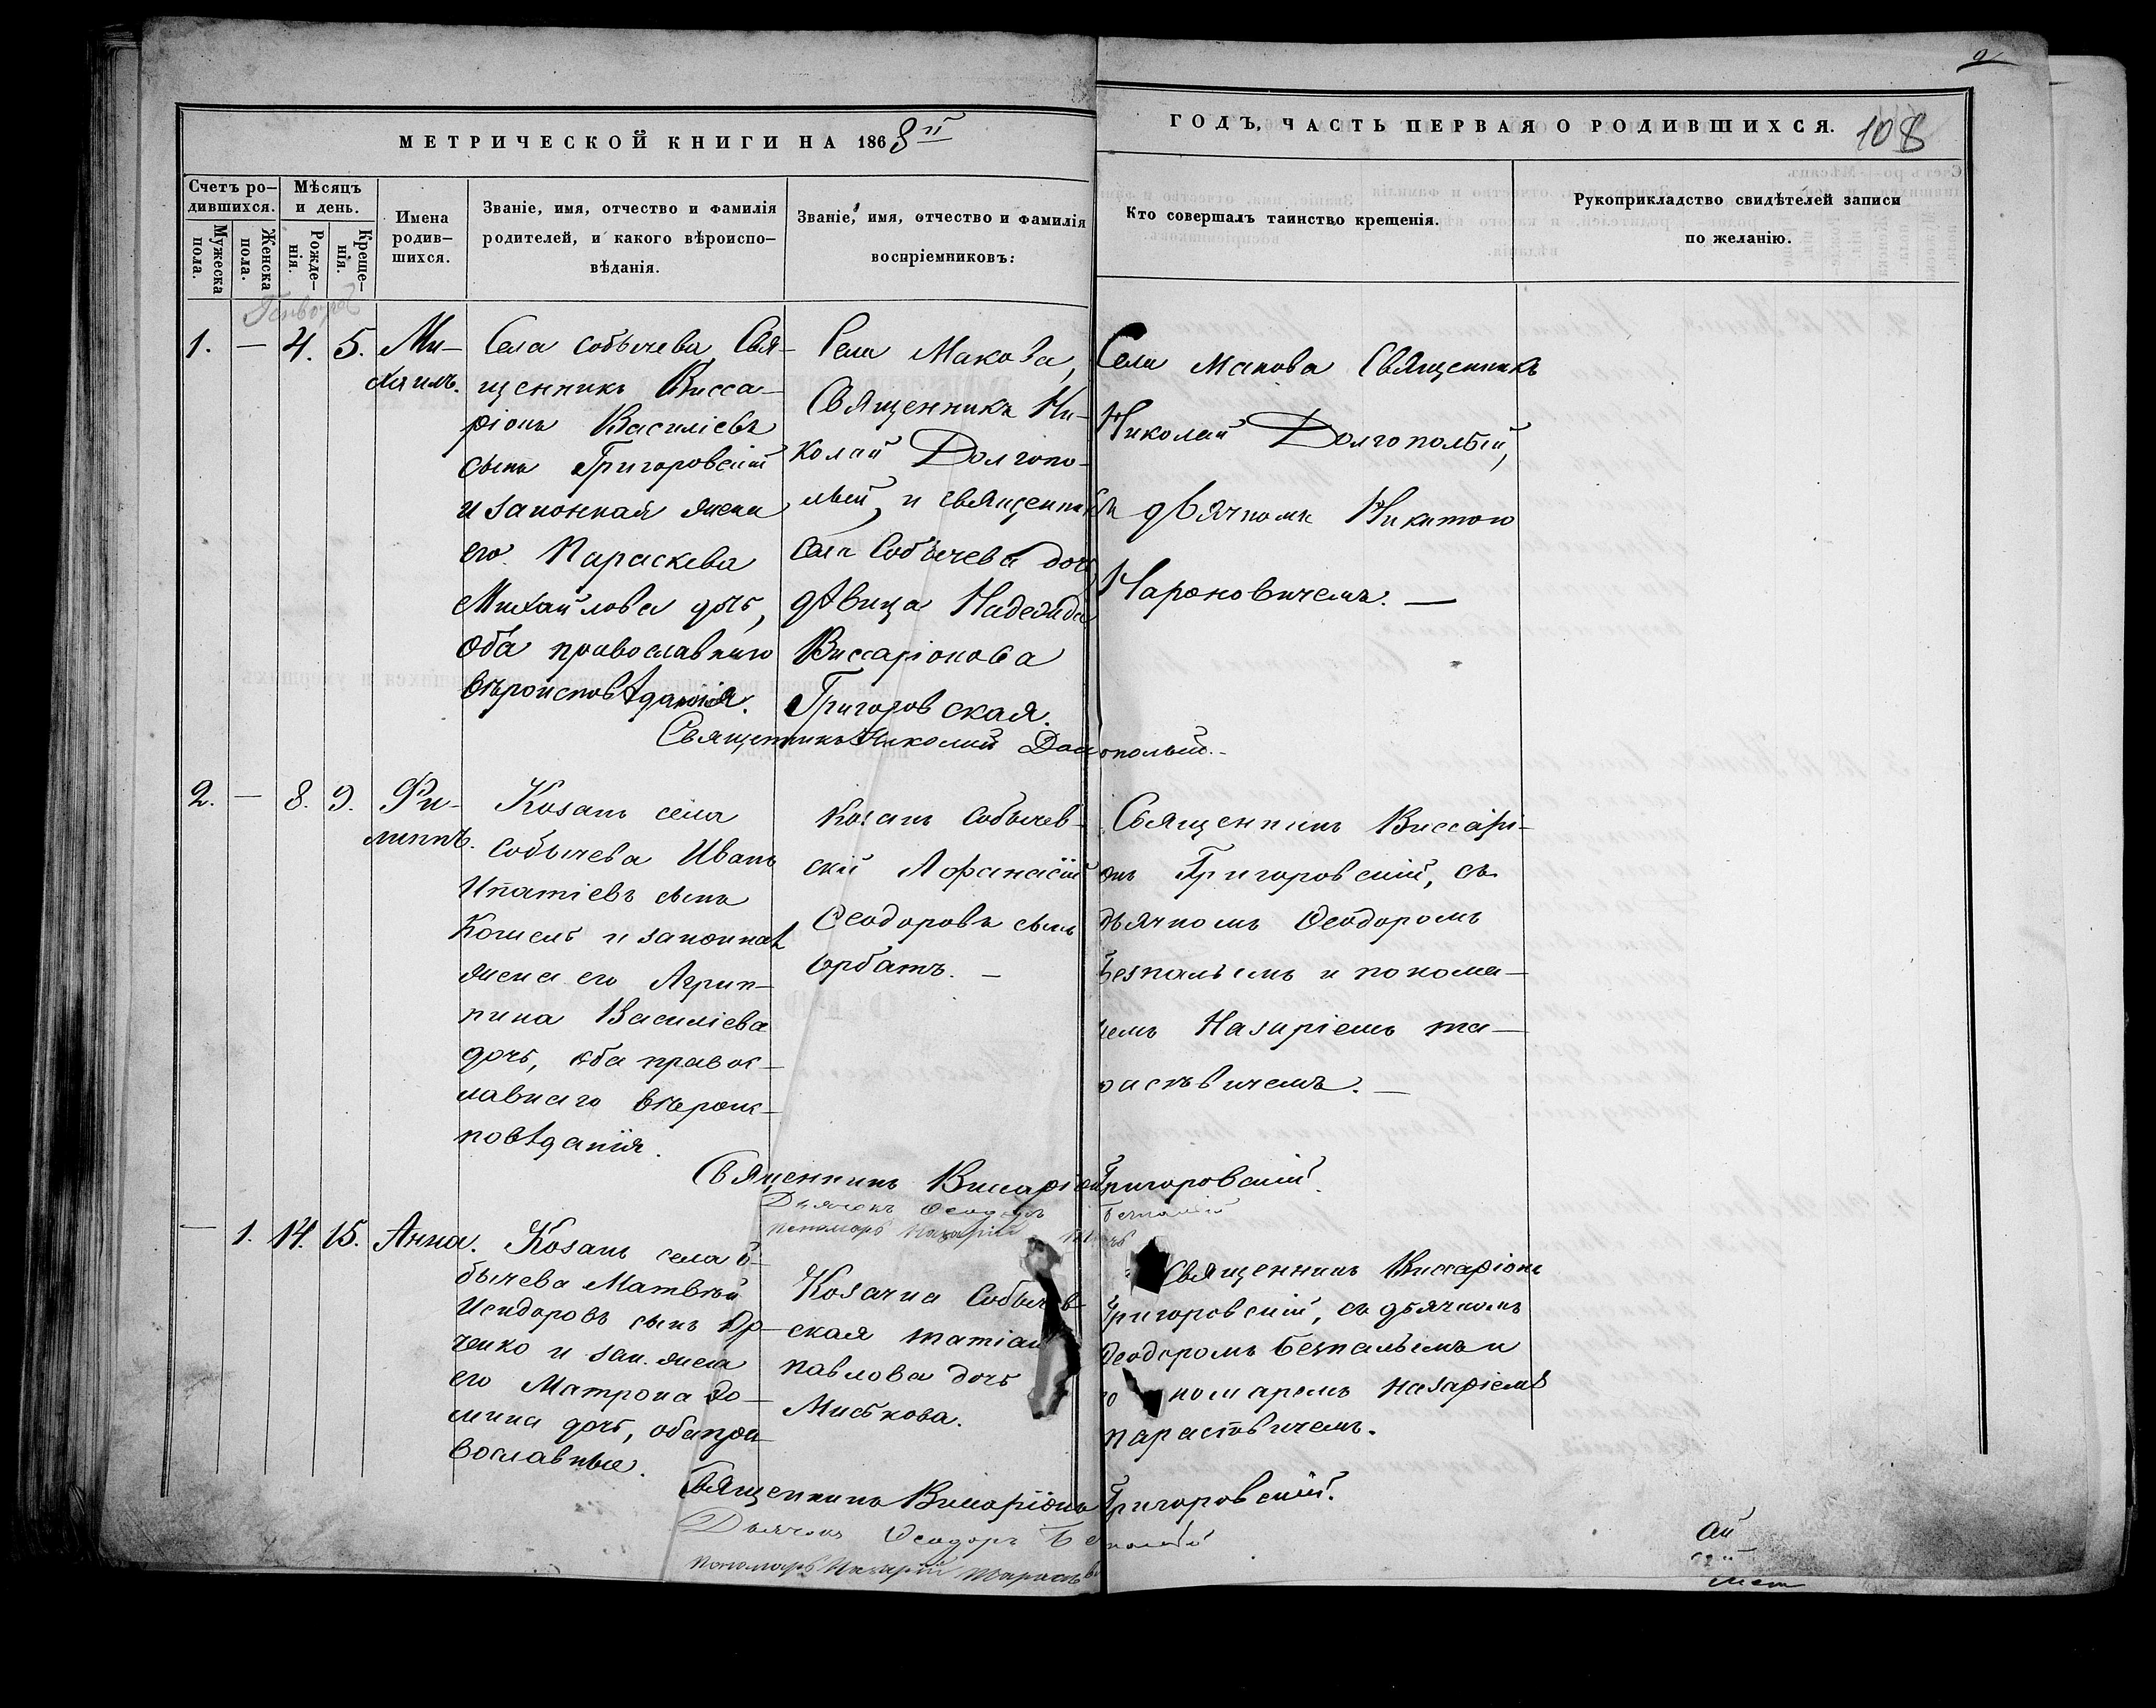 МЕТРИЧЕСКОЙ КНИГИ НА 1868й
ГОДЪ, ЧАСТЬ ПЕРВАЯ О РОДИВШИХСЯ.
108
Счетъ ро-
дившихся.
Мужеска
пола.
Женска
пола.
Мѣсяцъ
и день.
Рожде-
нія.
Креще-
нія.
Имена
родив-
шихся.
Званіе, имя, отчество и фамилія
родителей, и какого вѣроиспо-
вѣданія.
Званіе, имя, отчество и фамилія
воспріемниковъ:
Кто совершалъ таинство крещенія.
Рукоприкладство свидѣтелей записи
по желанію.
1. — 4. 5.
Ми-
хаилъ.
Села Собычева, Свя-
щенникъ Висса-
ріонъ Василіевъ
сынъ Григоровскій
и законная жена
его Параскева
Михайлова дочь,
оба православнаго
вѣроисповѣданія.
Села Макова,
Священникъ Ни-
колай Долгопо-
лый, и священника
села Собычева дочь
дѣвица Надежда
Виссаріонова
Григоровская.
Села Макова Священникъ
Николай Долгополый,
съ дьячкомъ Никитою
Священникъ Николай Долгополый.
2. — 8. 9.
Фи-
липпъ.
Козакъ села
Собычева Иванъ
Ипатіевъ сынъ
и законная
жена его Агрип-
пина Василіева
дочь, оба правос-
лавнаго вѣроис-
повѣданія.
Козакъ Собычев-
скій Афанасій
Феодоровъ сынъ
Священникъ Виссарі-
онъ Григоровскій, съ
дьячкомъ Феодоромъ
Безпалымъ и понома-
ремъ Назаріемъ
Священникъ Виссаріонъ Григоровскій.
Дьячекъ Феодоръ
Пономарь Назарій
— 1. 14. 15.
Анна.
Козакъ села Со-
бычева Матвѣй
Исидоровъ сынъ
и зак. жена
его Матрона Ѳо-
мина дочь, оба пра-
вославные.
Козачка Собычев-
ская
Павлова дочь
Мискова.
Священникъ Виссаріонъ
Григоровскій, съ дьячкомъ
Феодоромъ Безпалымъ и
пономаремъ Назаріемъ
Священникъ Виссаріонъ Григоровскій.
Дьячекъ Феодоръ Безпалый
Пономарь Назарій